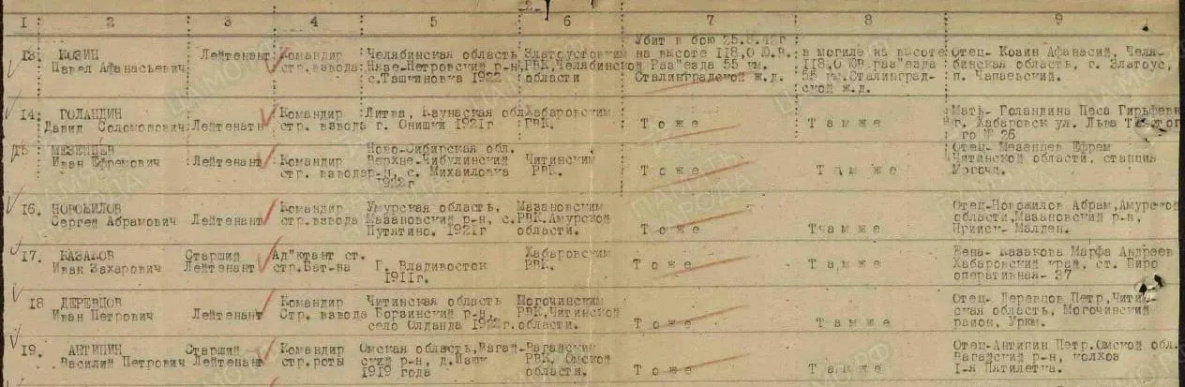 1 2 3 4 5 6 7 8 9
13. КОЗИН
Павел Афанасьевич
Лейтенант
Командир
стр. взвода
Челябинская область
Нязе-Петровский р-н,
с. Ташкиновка 1922
Златоустовский
РВК, Челябинской
области
Убит в бою 25.8.42г
на высоте 118,0 Ю.В.
Раз"езда 55 км.
Сталинградской ж.д.
в могиле на высоте
118,0 ЮВ.раз"езда
55 км.Сталинград-
ской ж.д.
Отец- Козин Афанасий, Челя-
бинская область, г. Златоус,
п. Чапаевский.
14. ГОЛАНДИН
Давид Соломонович
Лейтенант
Командир
стр. взвода
Литва, Каунасская обл
г. Онишки 1921г
Хабаровским
РВК.
Тоже
Тамже
Мать- Голандина Песа Гирьфеев
г. Хабаровск ул. Льва Толстог
го № 26
15 МЕЗЕНЦЕВ
Иван Ефремович
Лейтенант
Командир
стр. взвода
Ново-Сибирская обл.
Верхне-Чибулинский
р-н, с. Михаиловка
1922г
Читинским
РВК.
Тоже
Тамже
Отец- Мезенцев Ефрем
Читинской области, станция
Могочи.
16. НОВОЖИЛОВ
Сергей Абрамович
Лейтенант
Командир
стр.взвода
Амурская область,
Мазановский р-н, с.
Путятино. 1921г
Мазановским
РВК.Амурской
области.
Тоже
Тчамже
Отец-Новожилов Абрам,Амурско
области,Мазановский р-н,
Прииск- Майден.
17. КАЗАКОВ
Иван Захарович
Старший
Лейтенант
Ад"ютант ст.
стр.Бат-на
Г. Владивосток
1911г.
Хабаровским
РВК.
Тоже
Тамже
Жена- Казакова Марфа Андреев
Хабаровский край, ст. Биро
оперативная- 37
18 ДЕРЕВЦОВ
Иван Петрович
Лейтенант
Командир
Стр. взвода
Читинская область
Борзинский р-н,
село Олданда 1922г.
Могочинским
РВК,Читинской
области.
Тоже
Тамже
Отец- Деревцов Петр,Читин
ская область, Могочинский
район, Урюм.
19. АНТИПИН
Василий Петрович
Старший
Лейтенант
Командир
стр.роты
Омская область,Вагай-
ский р-н, д.
1919 года
Вагайским
РВК. Омской
области.
Тоже
Тамже
Отец-Антипин Петр.Омской обл.
Вагайский р-н, колхоз
1-я Пятилетка.